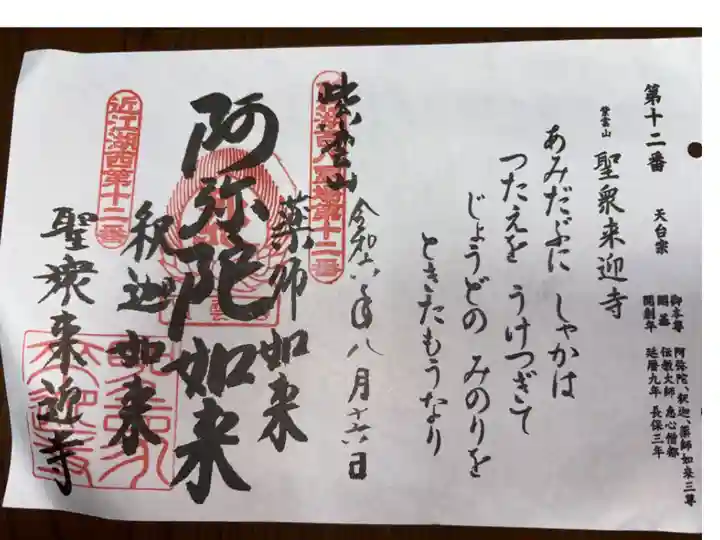 第十二番 天台宗
紫雲山 聖衆来迎寺
御本尊 阿弥陀、釈迦、薬師如来三尊
開基 伝教大師 恵心僧都
開創年 延暦九年 長保三年
あみだぶに しゃかは
つたえを うけつぎて
じょうどの みのりを
ときたもうなり
令和六年八月十六日
紫雲山
薬師如来
阿弥陀如来
釈迦如来
聖衆来迎寺
近江湖西第十二番